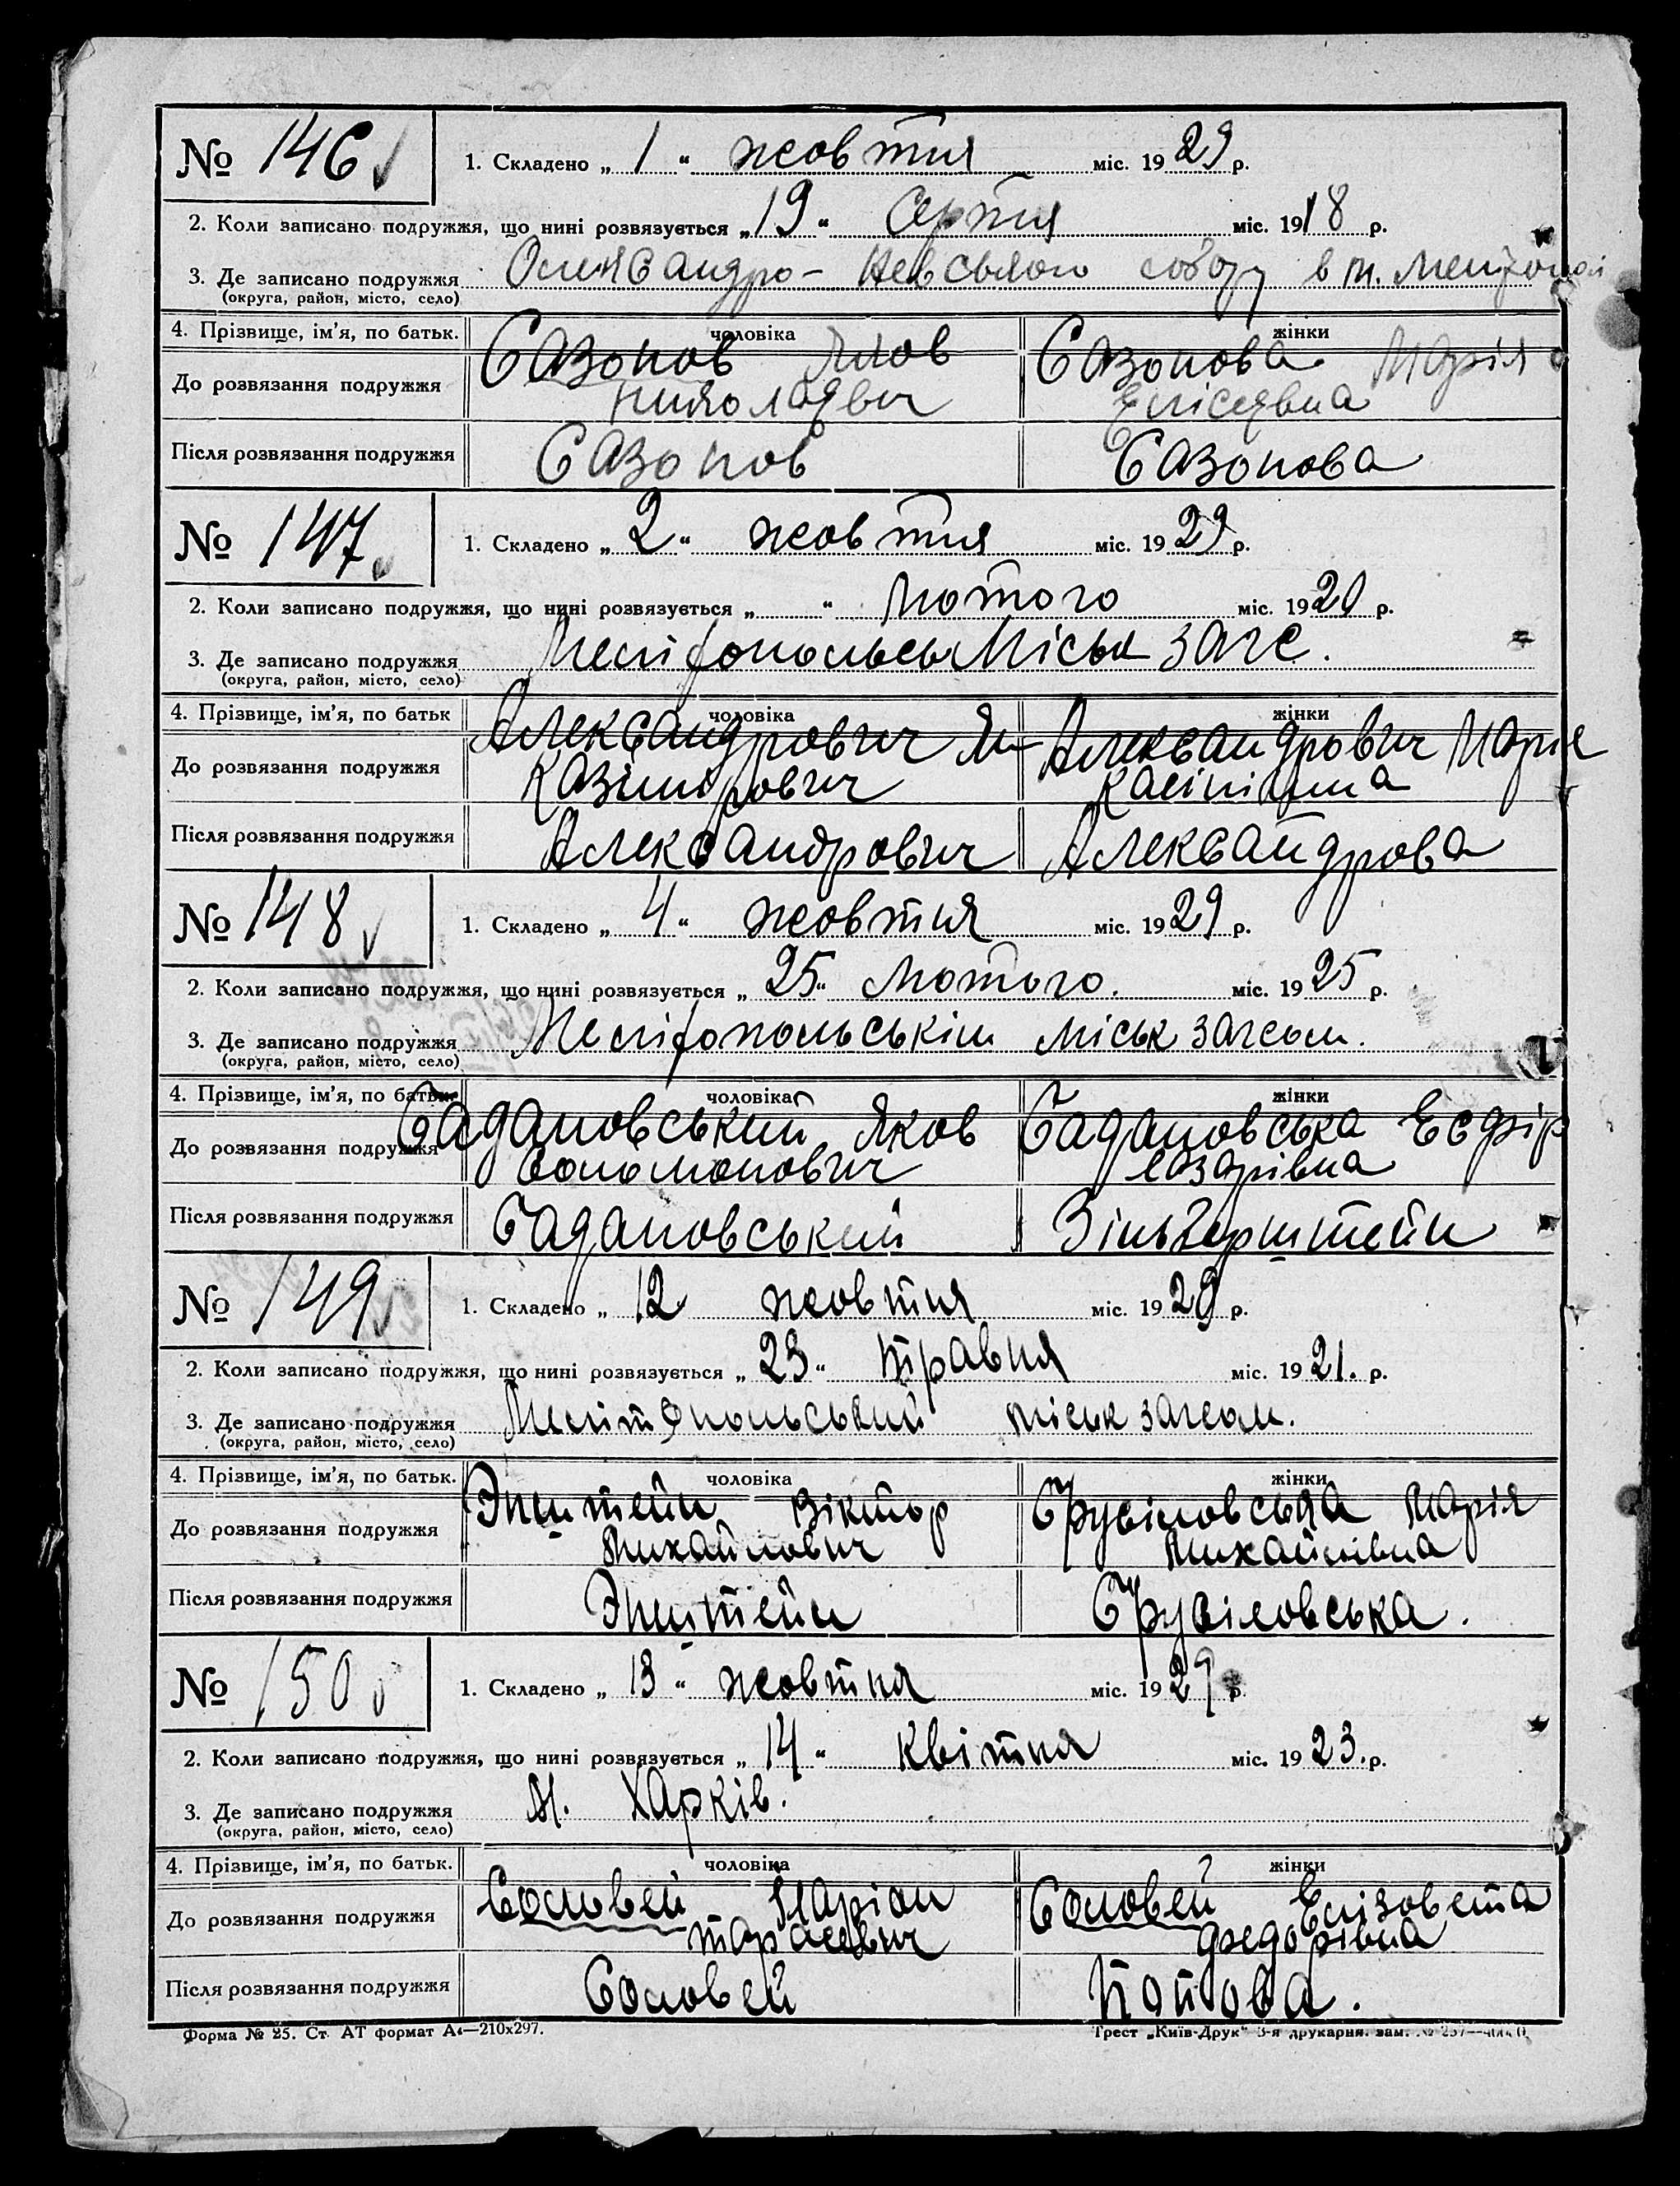 № 146
1. Складено „ 1 “ жовтня міс. 1929 р.
2. Коли записано подружжя, що нині розвязується „ 19 “ Серпня міс. 1918 р.
3. Де записано подружжя Олександро-Невського собору в м.
(округа, район, місто, село)
4. Прізвище, ім’я, по батьк. чоловіка жінки
До розвязання подружжя Сазонов Сазонова Марія
Єлісеєвна
Після розвязання подружжя Сазонов Сазонова
№ 147
1. Складено „ 2 “ жовтня міс. 1929 р.
2. Коли записано подружжя, що нині розвязується „ “ Лютого міс. 1920 р.
3. Де записано подружжя Міськ загс.
(округа, район, місто, село)
4. Прізвище, ім’я, по батьк чоловіка жінки
До розвязання подружжя Александрович Ян Александрович Марія
Казімірович
Після розвязання подружжя Александрович Александрова
№ 148
1. Складено „ 4 “ жовтня міс. 1929 р.
2. Коли записано подружжя, що нині розвязується „ 25 “ Лютого. міс. 1925 р.
3. Де записано подружжя Мелітопольськім міськ загсом.
(округа, район, місто, село)
4. Прізвище, ім’я, по батьк. чоловіка жінки
До розвязання подружжя Гадановський Яков Гадановська
Соломонович Лазарівна
Після розвязання подружжя Гадановський Зільберштейн
№ 149
1. Складено „ 12 жовтня міс. 1929 р.
2. Коли записано подружжя, що нині розвязується „ 23 “ травня міс. 1921. р.
3. Де записано подружжя Мелітопольський міськ загсом.
(округа, район, місто, село)
4. Прізвище, ім’я, по батьк. чоловіка жінки
До розвязання подружжя Эпштейн Віктор Марія
Михайлович Михайлівна
Після розвязання подружжя Эпштейн
№ 150
1. Складено „ 13 “ жовтня міс. 1929 р.
2. Коли записано подружжя, що нині розвязується „ 14 “ квітня міс. 1923. р.
3. Де записано подружжя м. Харків.
(округа, район, місто, село)
4. Прізвище, ім’я, по батьк. чоловіка жінки
До розвязання подружжя Соловей Маріан Соловей Елізовета
Тарасевич Федорівна
Після розвязання подружжя Соловей Попова.
Форма № 25. Ст. АТ формат А4—210х297. Трест „Київ-Друк“ 3-я друкарня. зам. № 257